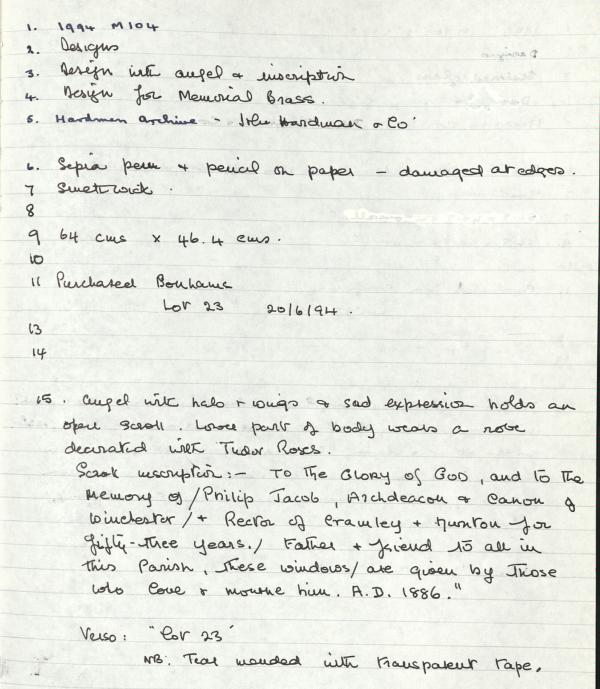 1. 1994 M104
2. Designs
3. Design with angel & inscription
4. Design for Memorial Brass.
5. Hardman Archive - John Hardman & Co'
6. Sepia pen & pencil on paper - damaged at edges.
7 Smethwick.
8
9 64 cms x 46.4 cms.
10
11 Purchased Bonhams
Lot 23 20/6/94.
13
14
15. Angel with halo & wings & sad expression holds an
open scroll. Lower part of body wears a robe
decorated with Tudor Roses.
Scroll inscription:- To The Glory of God, and to the
Memory of / Philip Jacob, Archdeacon & Canon of
Winchester / + Rector of Crawley + Hunton for
fifty-three years. / Father + friend to all in
this Parish, these windows / are given by Those
who love & mourne him. A.D. 1886."
Verso: "Lot 23"
NB: Tear mended with transparent tape.